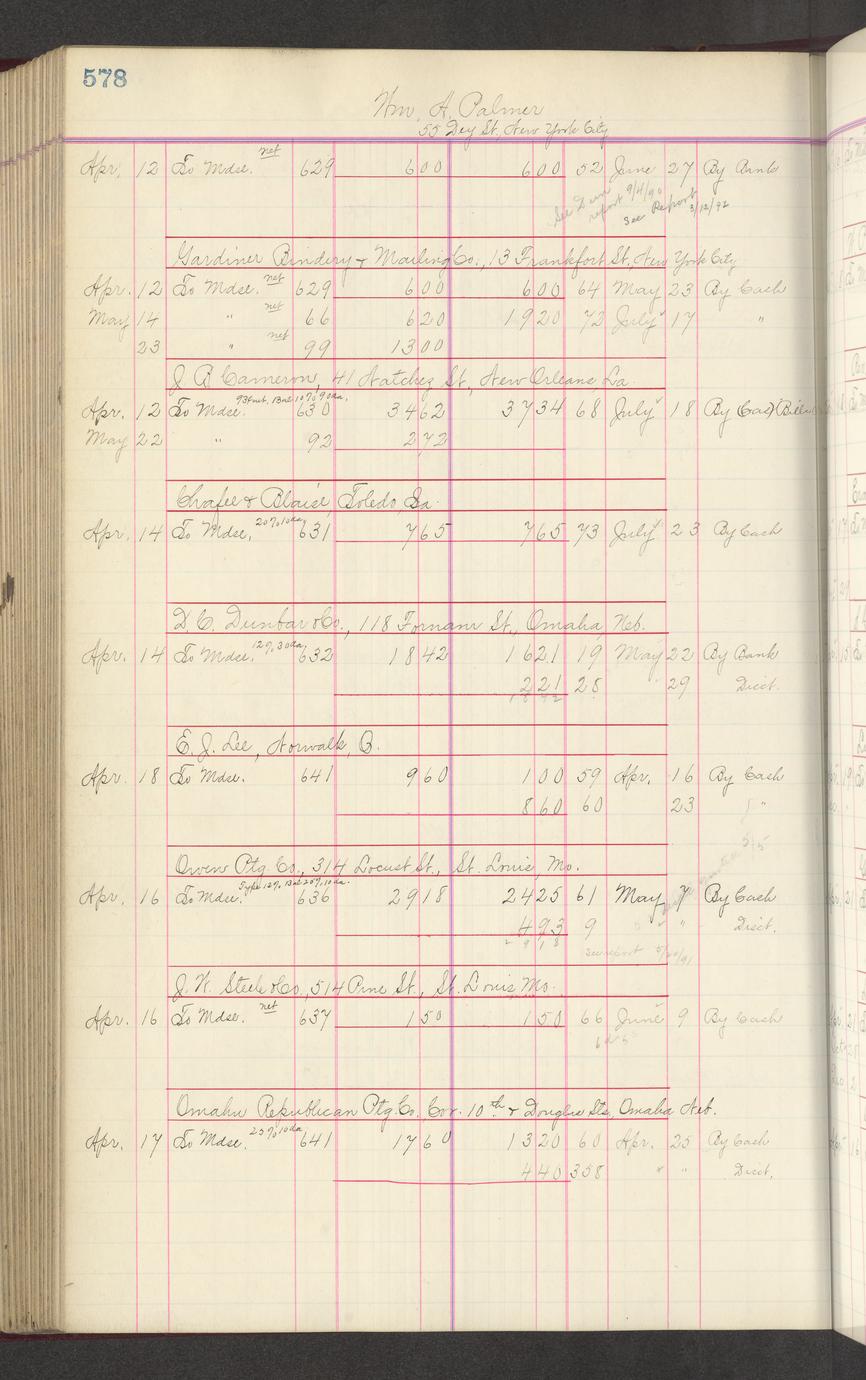 578
Wm. A. Palmer
55 Dey St., New York City
Apr. 12 To Mdse. net 629 600 600 52 June 27 By Bank
See Dun report 9/4/90
See Report 3/12/92
Gardiner Bindery & Mailing Co., 13 Frankfort St., New York City
Apr. 12 To Mdse. net 629 600 600 64 May 23 By Cash
May 14 " net 66 620 1920 72 July 17 "
23 " net 99 1300
J. B. Cameron, 41 Natchez St., New Orleans La.
Apr. 12 To Mdse. 630 3462 3734 68 July 18 By Cas
May 22 " 92 272
Chafee & Blaise, Toledo, Ia.
Apr. 14 To Mdse. 20% 10 da. 631 765 765 73 July 23 By Cash
D. C. Dunbar & Co., 118 Fornam St., Omaha, Neb.
Apr. 14 To Mdse. 12% 30 da. 632 1842 1621 19 May 22 By Bank
221 28 " 29 Disct.
1842
E. J. Lee, Norwalk, O.
Apr. 18 To Mdse. 641 960 100 59 Apr. 16 By Cash
860 60 23 "
Owen Ptg. Co., 314 Locust St., St. Louis, Mo.
Apr. 16 To Mdse. Type 12%, Bal 20% 10 da. 636 2918 2425 61 May 7 By Cash
493 9 " " Disct.
2918
See report 5/20/91
J. W. Steele & Co., 514 Pine St., St. Louis Mo.
Apr. 16 To Mdse. net 637 150 150 66 June 9 By Cash
Omaha Republican Ptg. Co. Cor. 10th & Douglas Sts., Omaha Neb.
Apr. 17 To Mdse. 25% 10 da 641 1760 1320 60 Apr. 25 By Cash
440 358 " " Disct.